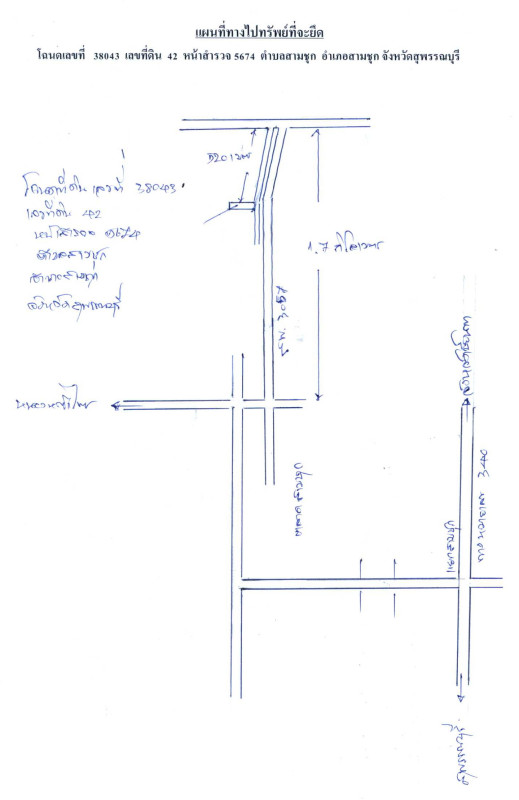 แผนที่ทางไปทรัพย์ที่จะยึด
โฉนดเลขที่ 38043 เลขที่ดิน 42 หน้าสำรวจ 5674 ตำบลสามชุก อำเภอสามชุก จังหวัดสุพรรณบุรี
320 เมตร
โฉนดที่ดินเลขที่ 38043
เลขที่ดิน 42
หน้าสำรวจ 5674
ตำบลสามชุก
อำเภอสามชุก
จังหวัดสุพรรณบุรี
1.7 กิโลเมตร
สพ. 3057
ตลาดสามชุก
แยกสามชุก
ทางหลวง 340
สุพรรณบุรี